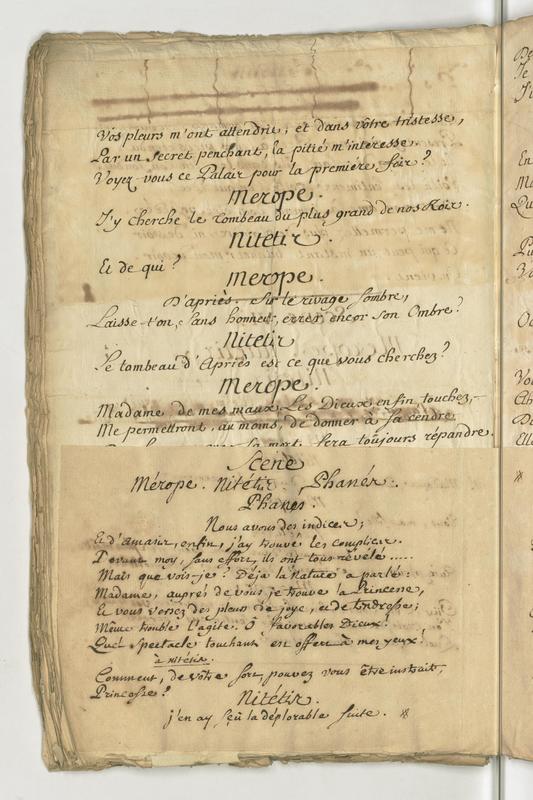 Vos pleurs m'ont attendrit, et dans vôtre tristesse,
Par un secret penchant, la pitié m'interesse.
Voyez-vous ce Palais pour la premiére fois?
Merope.
J'y cherche le Tombeau du plus grand de nos Rois.
Nitétis.
Et de qui?
Merope.
D'Apriés. Sur le rivage sombre,
Laisse-t'on, sans honneur, errer encor son Ombre?
Nitétis
Le tombeau d'Apriés est ce que vous cherchez?
Merope.
Madame, de mes maux, Les Dieux enfin touchez,
Me permettront, au moins, de donner à sa cendre
sa mort, fera toûjours répandre.
Scene
Mérope. Nitétis. Phanés.
Phanes.
Nous avons des indices;
Et d'Amasis, enfin, j'ay trouvé les complices.
Devant moy, sans effort, ils ont tous révélé.....
Mais que vois-je? Déja la Nature a parlé:
Madame, auprés de vous je trouve la Princesse,
Et vous versez des pleurs de joye, et de tendresse;
Même trouble l'agite. Ô favorables Dieux!
Quel spectacle touchant est offert à mes yeux!
à Nitétis.
Comment, de vôtre sort, pouvez vous être instruit,
Princesse?
Nitétis.
j'en ay sçû la déplorable suite.